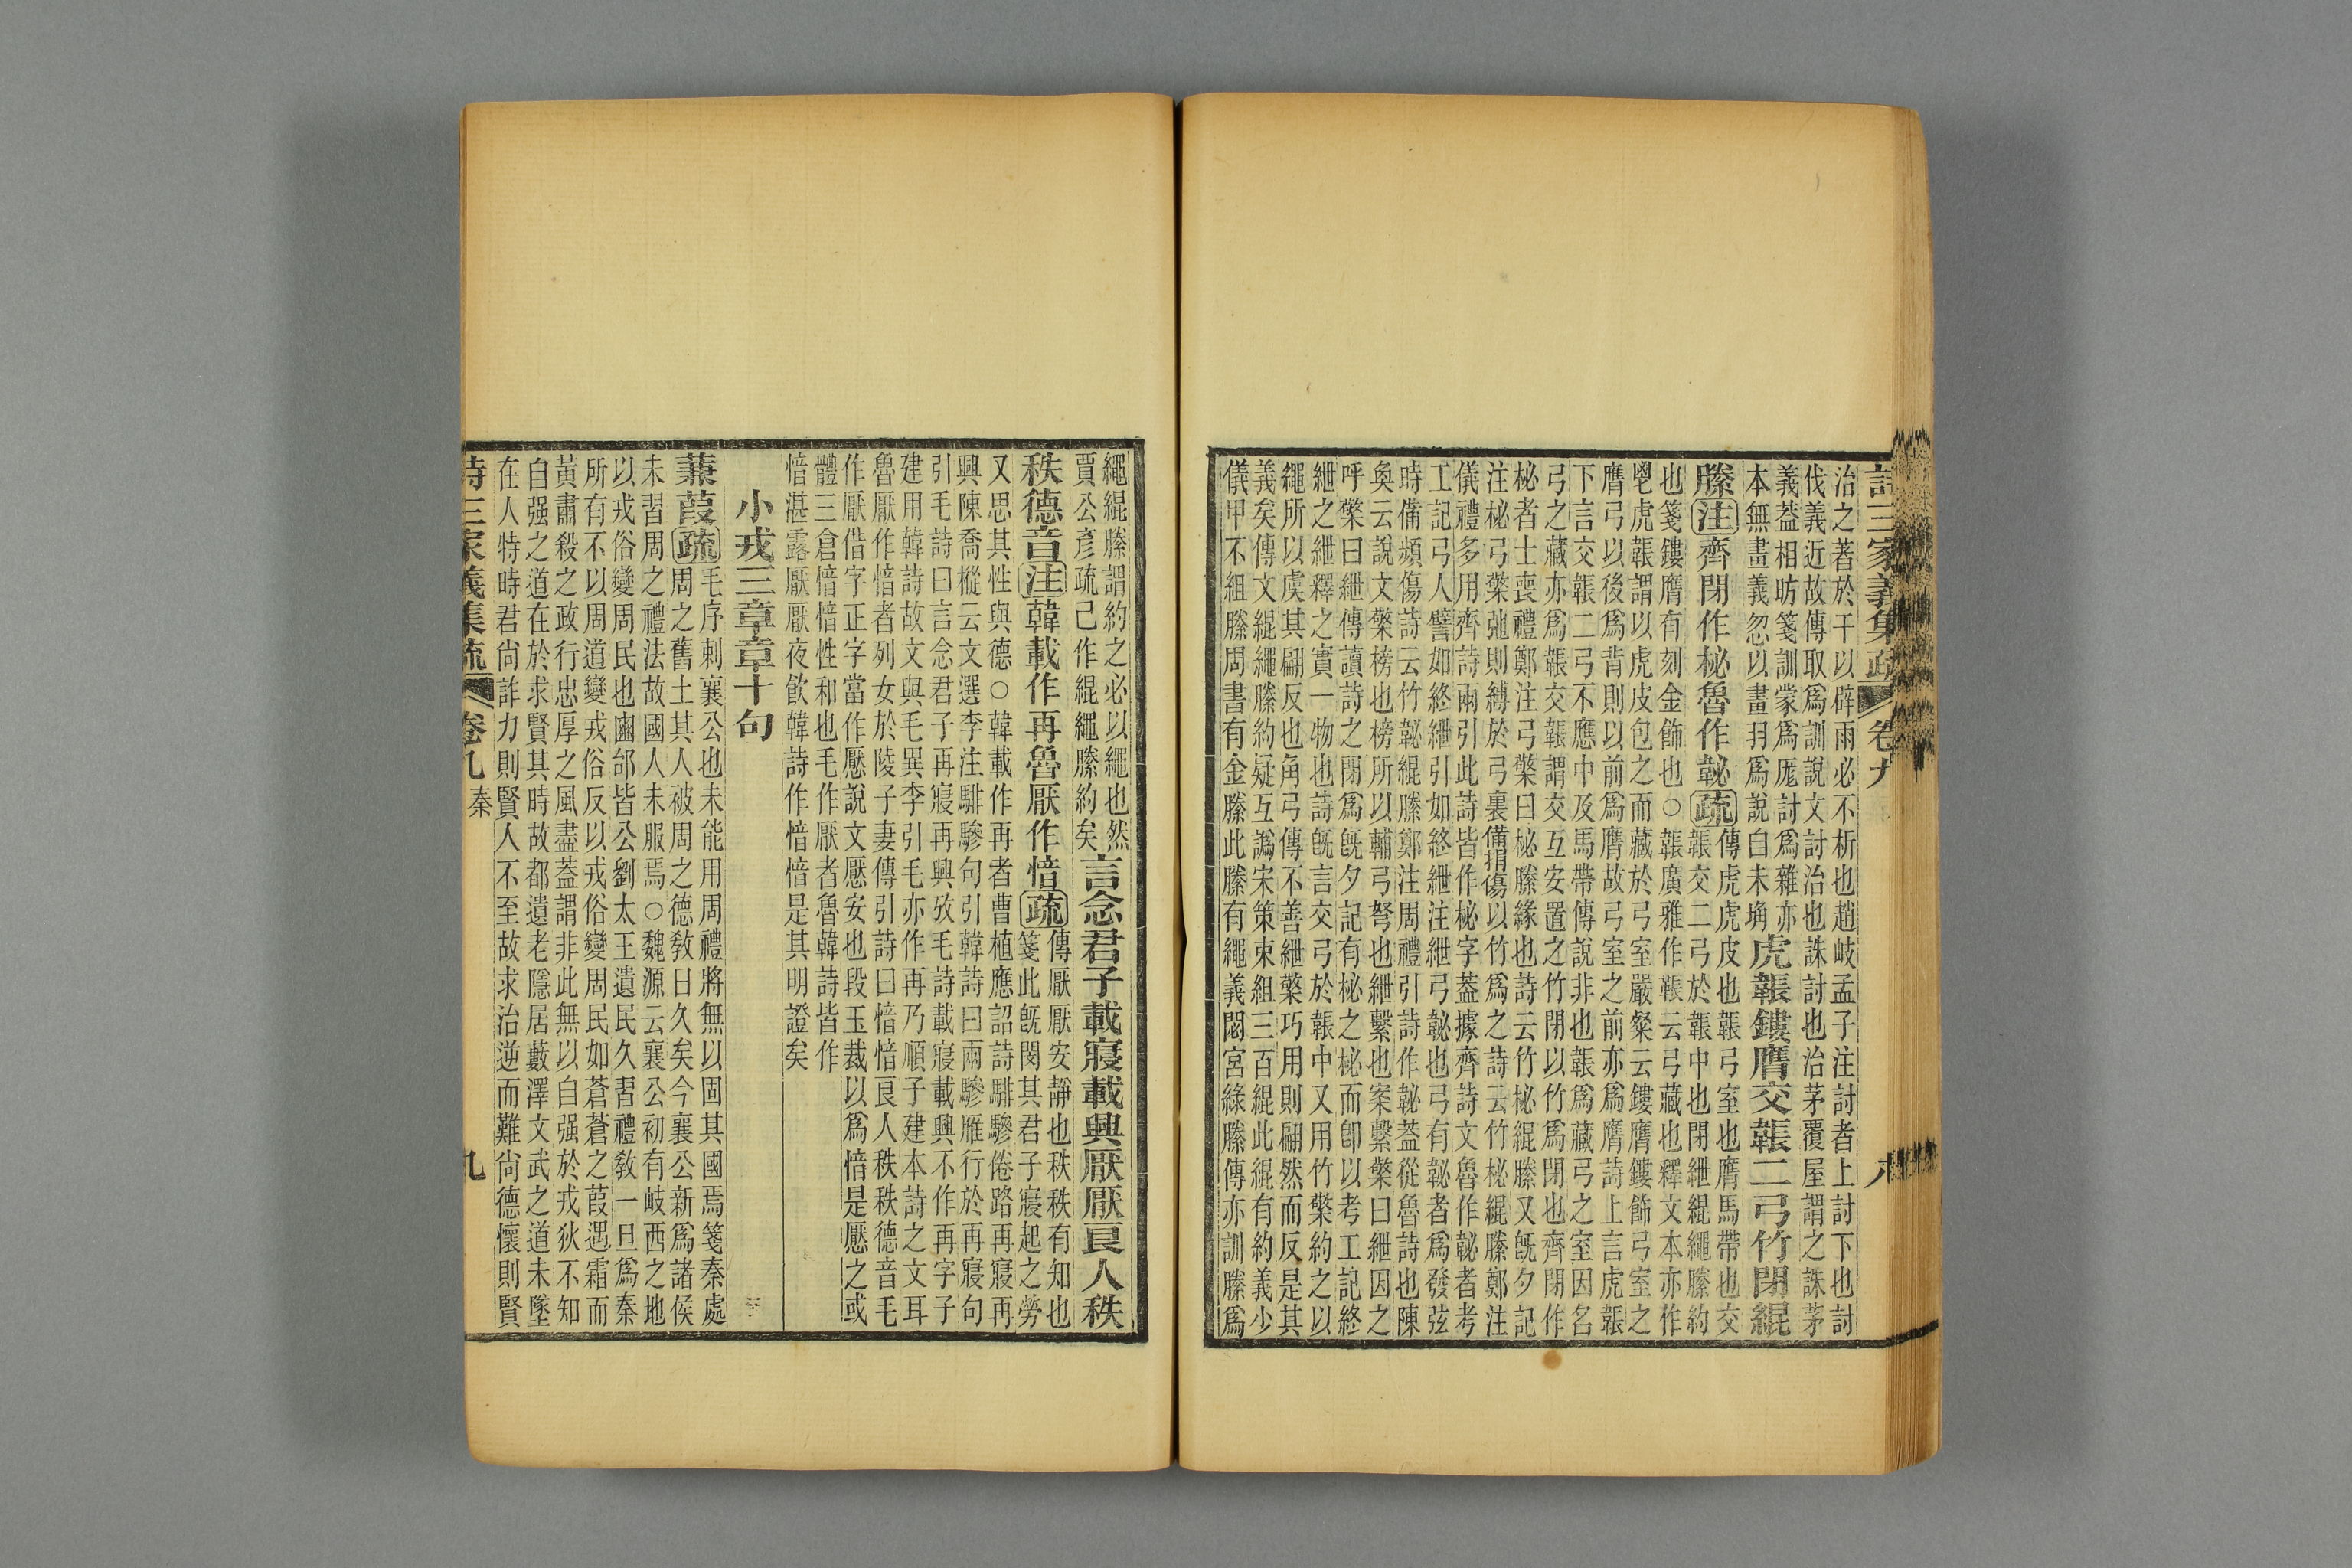 詩三家義集疏 卷九 八
治之著於干以辟雨必不析也趙岐孟子注討者上討下也討
伐義近故傳取爲訓說文討治也誅討也治茅覆屋謂之誅茅
義葢相昉箋訓蒙爲厖討爲雜亦
本無畫義忽以畫羽爲說自未埆
虎韔鏤膺交韔二弓竹閉緄
縢注齊閉作柲魯作䪐疏
傳虎虎皮也韔弓室也膺馬帶也交
韔交二弓於韔中也閉紲緄繩縢約
也箋鏤膺有刻金飾也○韔廣雅作䩨云弓藏也釋文本亦作
鬯虎韔謂以虎皮包之而藏於弓室嚴粲云鏤膺鏤飾弓室之
膺弓以後爲背則以前爲膺故弓室之前亦爲膺詩上言虎韔
下言交韔二弓不應中及馬帶傳說非也韔爲藏弓之室因名
弓之藏亦爲韔交韔謂交互安置之竹閉以竹爲閉也齊閉作
柲者士喪禮鄭注弓檠曰柲縢緣也詩云竹柲緄縢又旣夕記
注柲弓檠弛則縛於弓裏備捐傷以竹爲之詩云竹柲緄縢鄭注
儀禮多用齊詩兩引此詩皆作柲字葢據齊詩文魯作䪐者考
工記弓人譬如終紲引如終紲注紲弓䪐也弓有䪐者爲發弦
時備頻傷詩云竹䪐緄縢鄭注周禮引詩作䪐葢從魯詩也陳
奐云說文檠榜也榜所以輔弓弩也紲繫也案繫檠曰紲因之
呼檠曰紲傳讀詩之閉爲旣夕記有柲之柲而卽以考工記終
紲之紲釋之實一物也詩旣言交弓於韔中又用竹檠約之以
繩所以虞其翩反也角弓傳不善紲檠巧用則翩然而反是其
義矣傳文緄繩縢約疑互譌宋策束組三百緄此緄有約義少
儀甲不組縢周書有金縢此縢有繩義閟宮綠縢傳亦訓縢爲
繩緄縢謂約之必以繩也然
賈公彥疏己作緄繩縢約矣
言念君子載寢載興厭厭良人秩
秩德音注韓載作再魯厭作愔疏
傳厭厭安靜也秩秩有知也
箋此旣閔其君子寢起之勞
又思其性與德○韓載作再者曹植應詔詩騑驂倦路再寢再
興陳喬樅云文選李注騑驂句引韓詩曰兩驂雁行於再寢句
引毛詩曰言念君子再寢再興攷毛詩載寢載興不作再字子
建用韓詩故文與毛異李引毛亦作再乃順子建本詩之文耳
魯厭作愔者列女於陵子妻傳引詩曰愔愔良人秩秩德音毛
作厭借字正字當作懕說文懕安也段玉裁以爲愔是懕之或
體三倉愔愔性和也毛作厭者魯韓詩皆作
愔湛露厭厭夜飮韓詩作愔愔是其明證矣
小戎三章章十句
蒹葭疏
毛序刺襄公也未能用周禮將無以固其國焉箋秦處
周之舊土其人被周之德敎日久矣今襄公新爲諸侯
未習周之禮法故國人未服焉○魏源云襄公初有岐西之地
以戎俗變周民也豳邰皆公劉太王遺民久習禮敎一旦爲秦
所有不以周道變戎俗反以戎俗變周民如蒼蒼之葭遇霜而
黃肅殺之政行忠厚之風盡葢謂非此無以自强於戎狄不知
自强之道在於求賢其時故都遺老隱居藪澤文武之道未墜
在人特時君尙詐力則賢人不至故求治逆而難尙德懷則賢
詩三家義集疏 卷九 秦 九